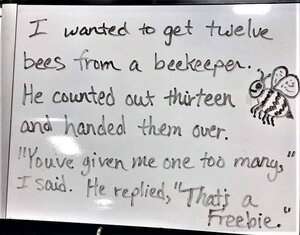 I wanted to get twelve
bees from a beekeeper.
He counted out thirteen
and handed them over.
"You've given me one too many,"
I said. He replied, "That's a
Freebie."